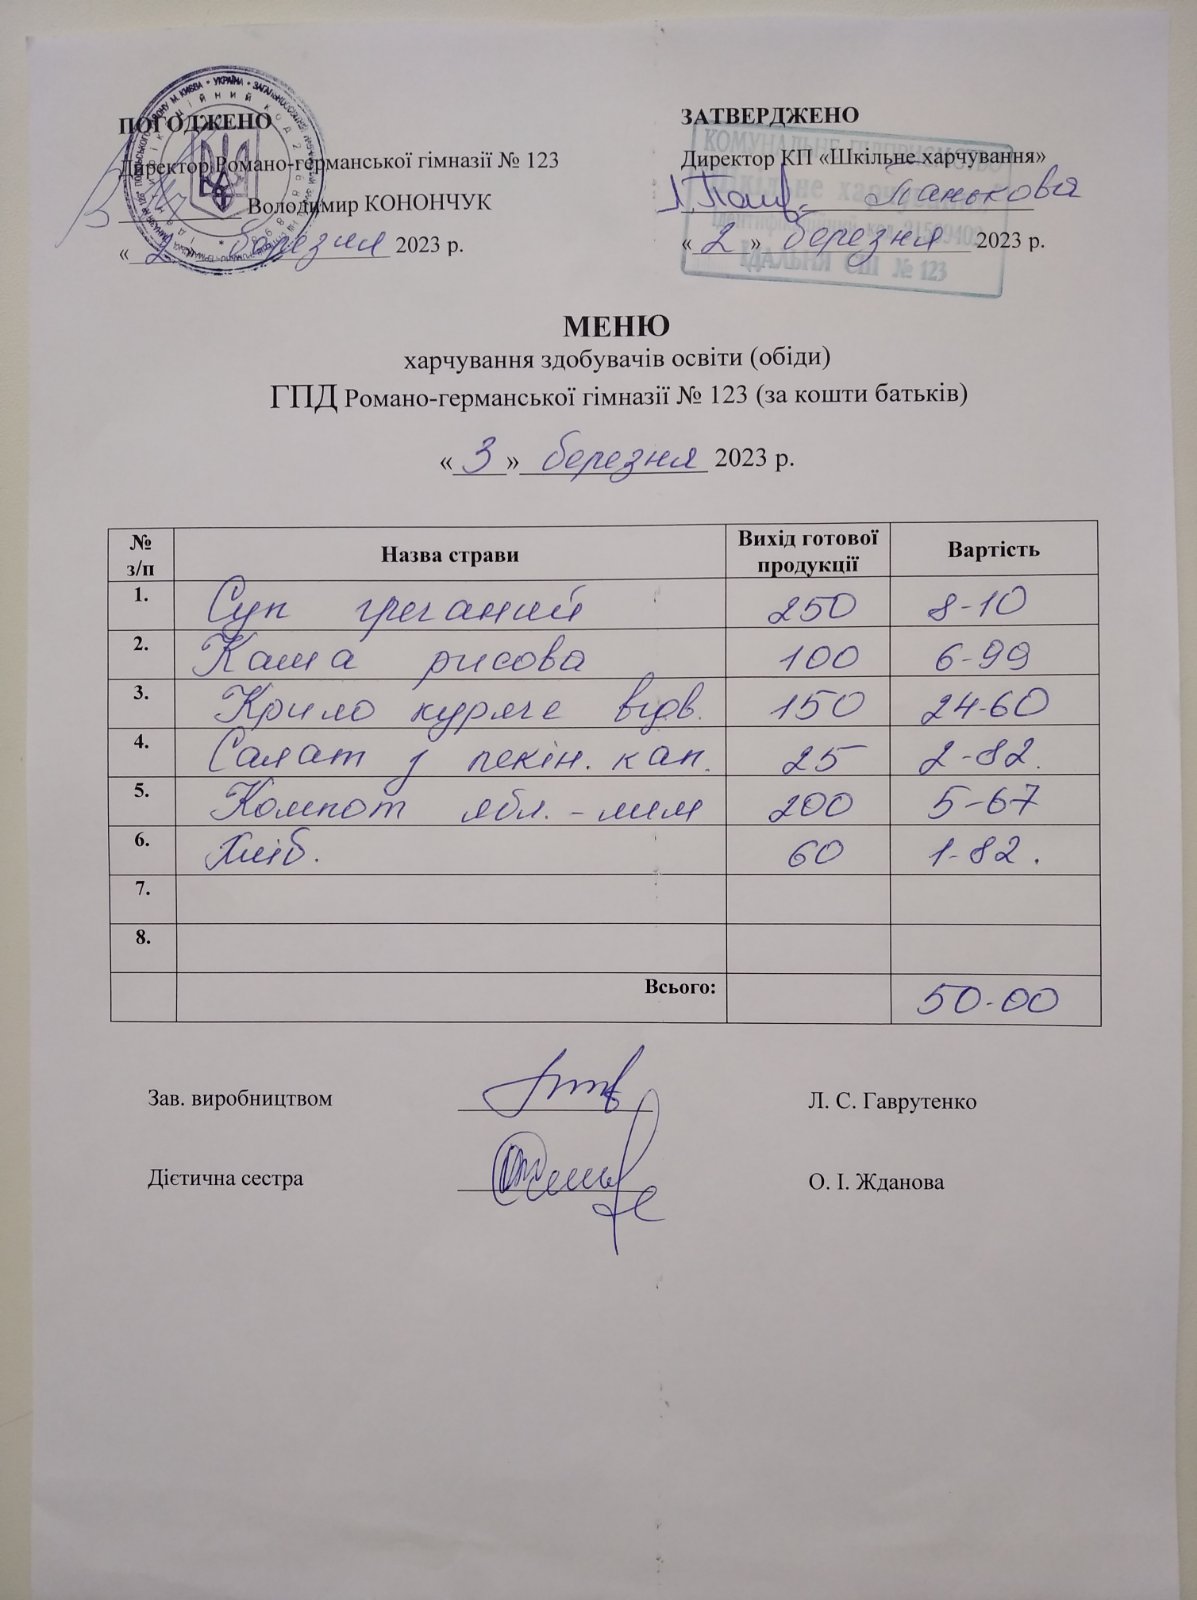 ПОГОДЖЕНО
Директор Романо-германської гімназії № 123
Володимир КОНОНЧУК
« 2 » березня 2023 р.
ЗАТВЕРДЖЕНО
Директор КП «Шкільне харчування»
Панькова
« 2 » березня 2023 р.
КОМУНАЛЬНЕ ПІДПРИЄМСТВО
Шкільне харчування
ЇДАЛЬНЯ СШ № 123
МЕНЮ
харчування здобувачів освіти (обіди)
ГПД Романо-германської гімназії № 123 (за кошти батьків)
« 3 » березня 2023 р.
№ з/п Назва страви Вихід готової продукції Вартість
1. Суп гречаний 250 8-10
2. Каша рисова 100 6-99
3. Крило куряче відв. 150 24-60
4. Салат з пекін. кап. 25 2-82.
5. Компот ябл. - лим 200 5-67
6. Хліб. 60 1-82.
7.
8.
Всього: 50-00
Зав. виробництвом Л. С. Гаврутенко
Дієтична сестра О. І. Жданова